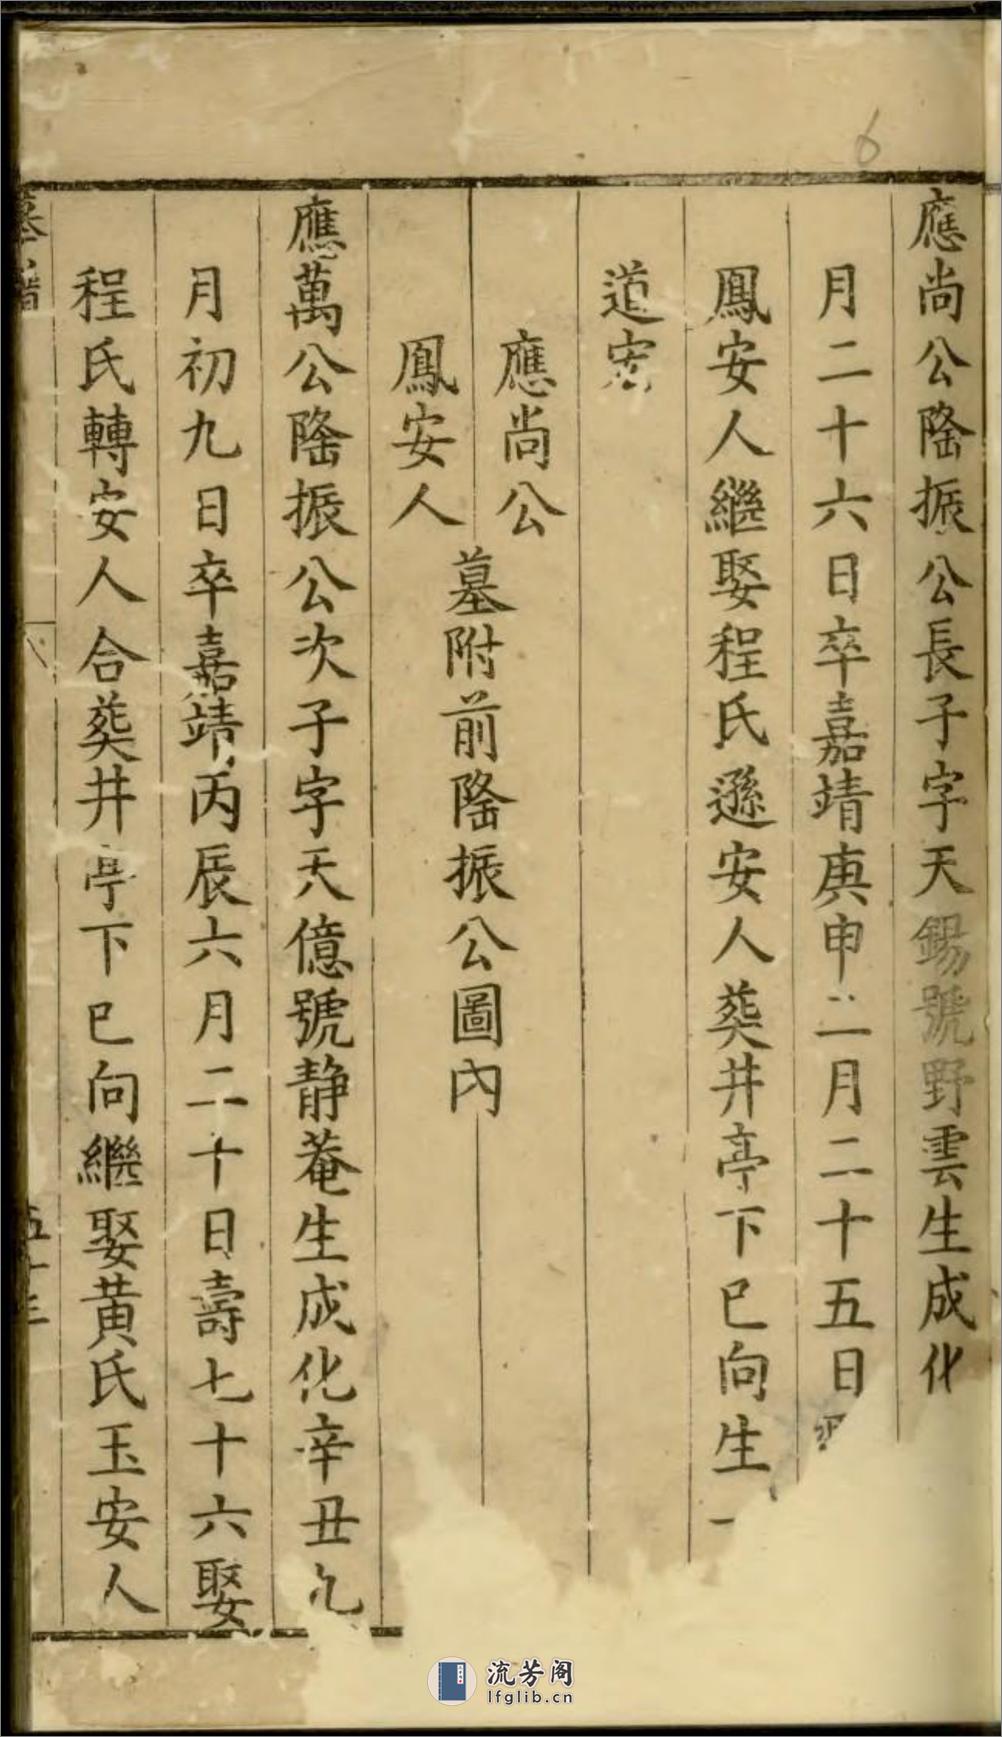 6
應尚公隆振公長子字天錫號野雲生成化
月二十六日卒嘉靖庚申二月二十五日
鳳安人繼娶程氏遜安人葬井亭下巳向生一
道宏
應尚公
鳳安人
墓附前隆振公圖內
應萬公隆振公次子字天億號靜菴生成化辛丑九
月初九日卒嘉靖丙辰六月二十日壽七十六娶
程氏轉安人合葬井亭下巳向繼娶黃氏玉安人
墓
流芳阁
lfglib.cn